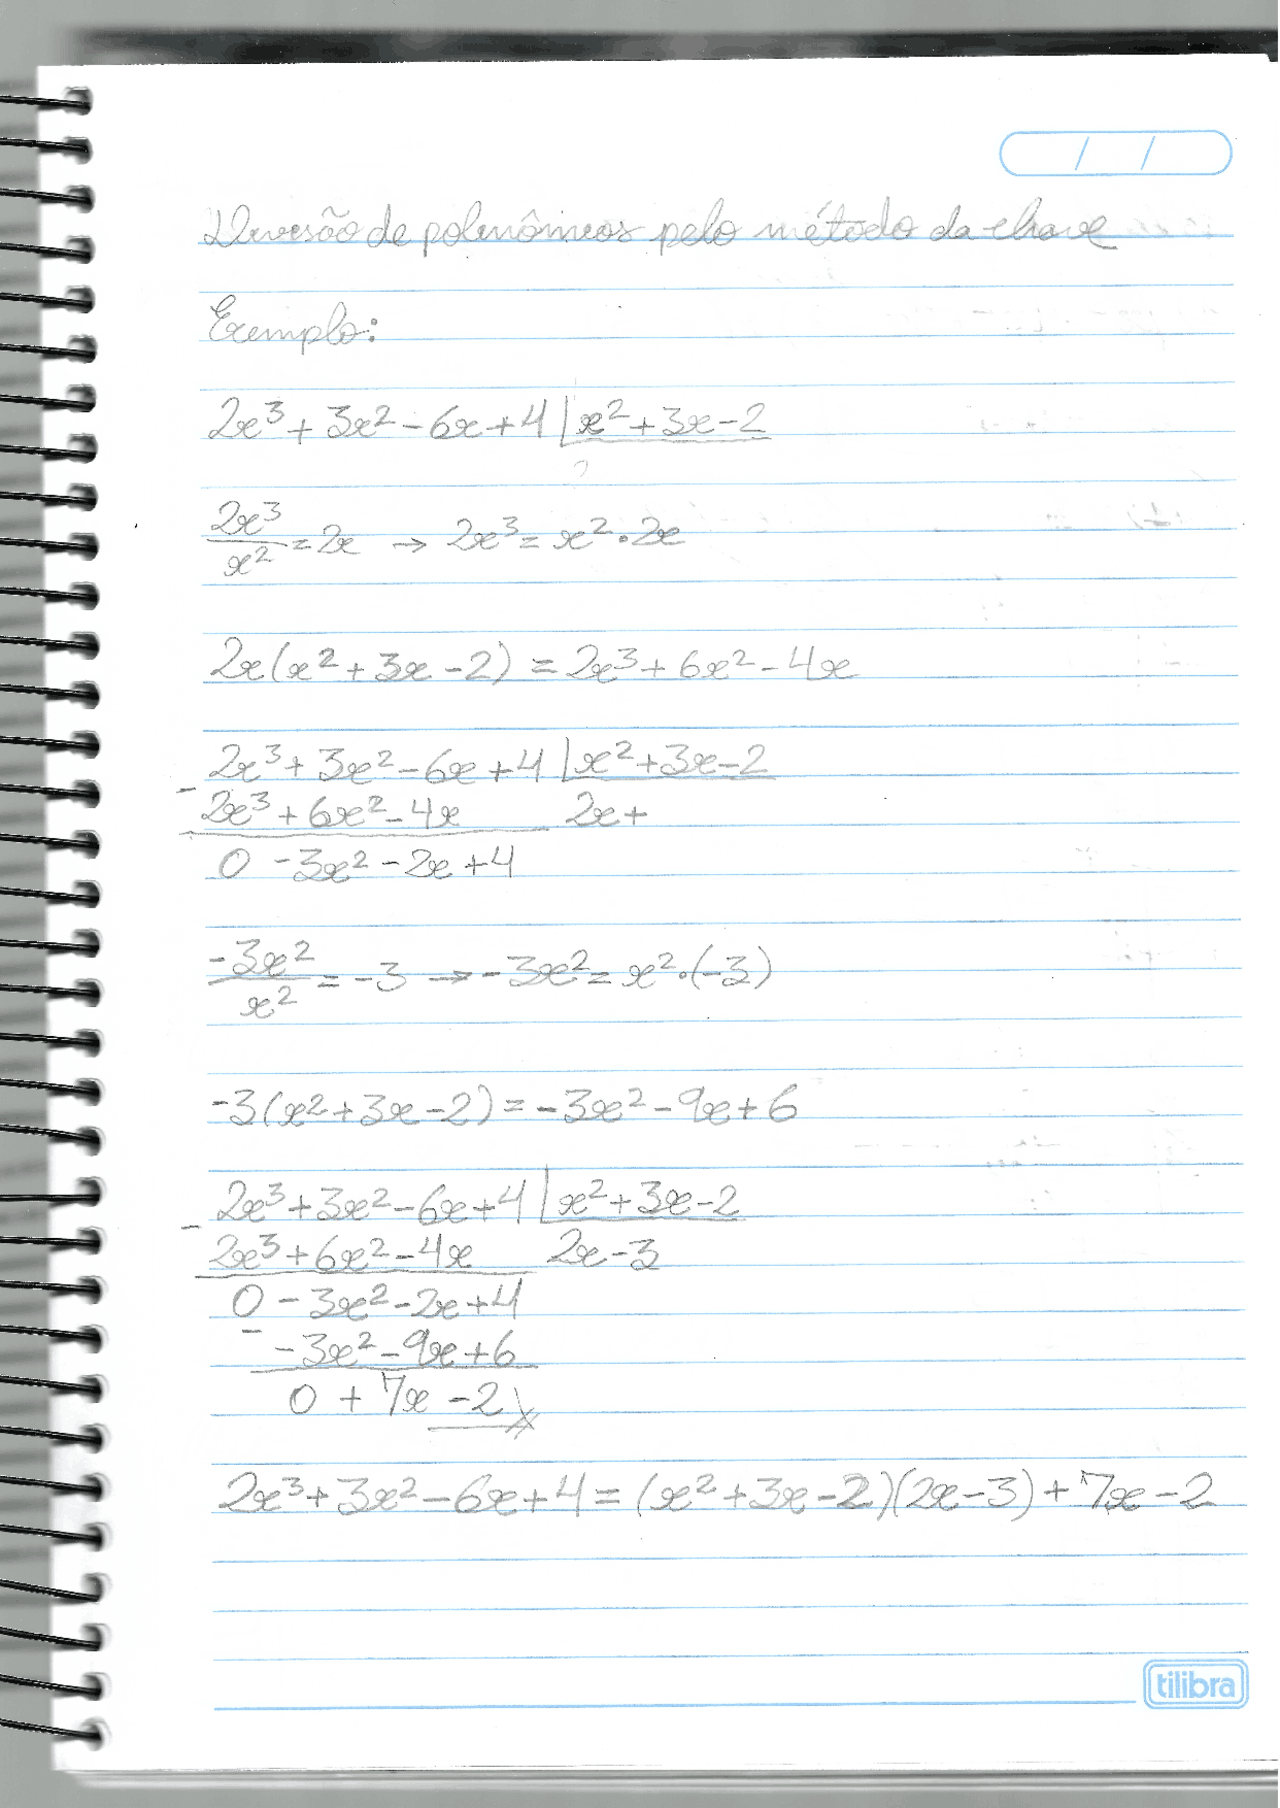 / /
Divisão de polinômios pelo método da chave
Exemplo:
2x³ + 3x² - 6x + 4 | x² + 3x - 2
?
2x³/x² = 2x → 2x³ = x² · 2x
2x(x² + 3x - 2) = 2x³ + 6x² - 4x
2x³ + 3x² - 6x + 4 | x² + 3x - 2
- 2x³ + 6x² - 4x 2x +
0 - 3x² - 2x + 4
-3x²/x² = -3 → -3x² = x² · (-3)
-3(x² + 3x - 2) = -3x² - 9x + 6
2x³ + 3x² - 6x + 4 | x² + 3x - 2
- 2x³ + 6x² - 4x 2x - 3
0 - 3x² - 2x + 4
- -3x² - 9x + 6
0 + 7x - 2
2x³ + 3x² - 6x + 4 = (x² + 3x - 2)(2x - 3) + 7x - 2
tilibra